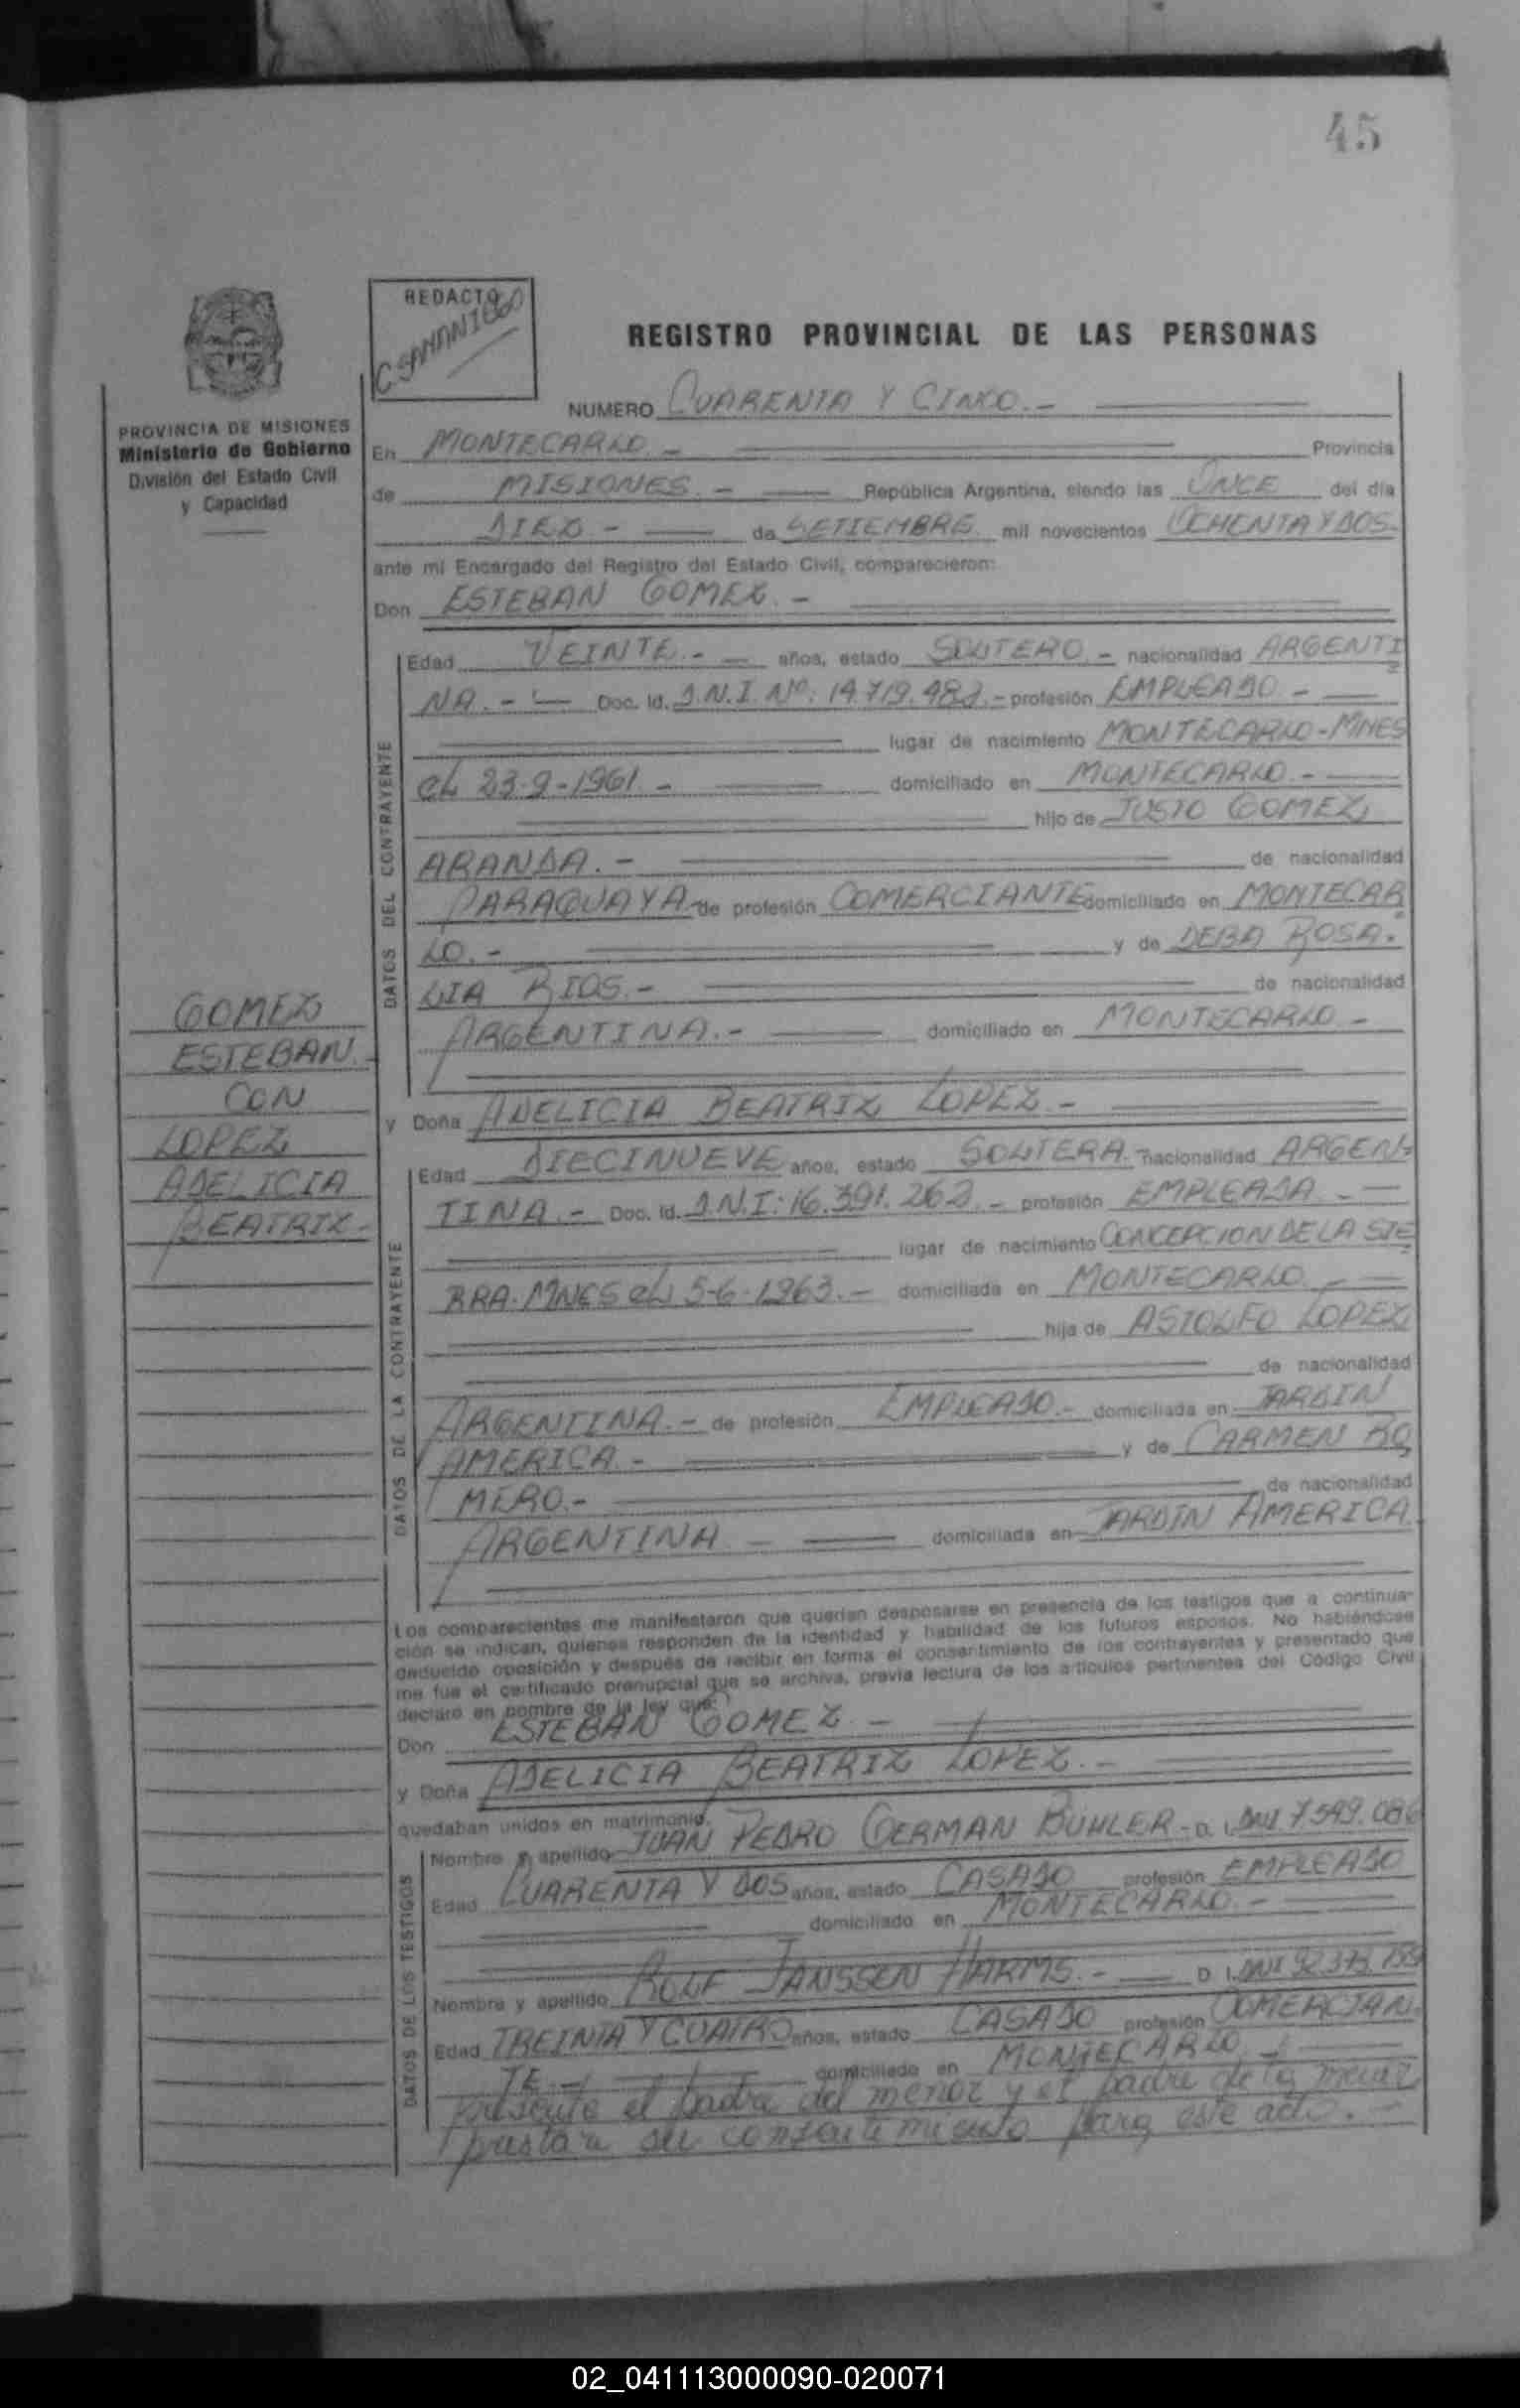 45
REDACTO
C SAMANIEGO
REGISTRO PROVINCIAL DE LAS PERSONAS
PROVINCIA DE MISIONES
Ministerio de Gobierno
División del Estado Civil
y Capacidad
NUMERO CUARENTA Y CINCO.-
En MONTECARLO.- Provincia
de MISIONES.- República Argentina, siendo las ONCE del día
DIEZ.- de SETIEMBRE mil novecientos OCHENTA Y DOS.
ante mi Encargado del Registro del Estado Civil, comparecieron:
Don ESTEBAN GOMEZ.-
DATOS DEL CONTRAYENTE
Edad VEINTE.- años, estado SOLTERO.- nacionalidad ARGENTI
NA.- Doc. Id. D.N.I. Nº: 14.719.482.- profesión EMPLEADO.-
lugar de nacimiento MONTECARLO-MNES
el 23-9-1961.- domiciliado en MONTECARLO.-
hijo de JUSTO GOMEZ
ARANDA.- de nacionalidad
PARAGUAYA de profesión COMERCIANTE domiciliado en MONTECAR
LO.- y de DEBA ROSA-
LIA RIOS.- de nacionalidad
ARGENTINA.- domiciliado en MONTECARLO-
GOMEZ
ESTEBAN.
CON
LOPEZ
ADELICIA
BEATRIZ-
y Doña ADELICIA BEATRIZ LOPEZ.-
DATOS DE LA CONTRAYENTE
Edad DIECINUEVE años, estado SOLTERA. nacionalidad ARGEN
TINA.- Doc. Id. D.N.I: 16.391.262.- profesión EMPLEADA.-
lugar de nacimiento CONCEPCION DE LA SIE
RRA-MNES el 5-6-1963.- domiciliada en MONTECARLO.-
hija de ASTOLFO LOPEZ
de nacionalidad
ARGENTINA.- de profesión EMPLEADO.- domiciliada en JARDIN
AMERICA.- y de CARMEN RO
MERO.- de nacionalidad
ARGENTINA.- domiciliada en JARDIN AMERICA.
Los comparecientes me manifestaron que querían desposarse en presencia de los testigos que a continua-
ción se indican, quienes responden de la identidad y habilidad de los futuros esposos. No habiéndose
deducido oposición y después de recibir en forma el consentimiento de los contrayentes y presentado que
me fue el certificado prenupcial que se archiva, previa lectura de los artículos pertinentes del Código Civil
declaro en nombre de la ley que:
Don ESTEBAN GOMEZ.-
y Doña ADELICIA BEATRIZ LOPEZ.-
quedaban unidos en matrimonio.
DATOS DE LOS TESTIGOS
Nombre y apellido JUAN PEDRO GERMAN BUHLER- D. I. DNI 7.549.086
Edad CUARENTA Y DOS años, estado CASADO profesión EMPLEADO
domiciliado en MONTECARLO.-
Nombre y apellido ROLF JANSSEN HARMS.- D I. DNI 92.373
Edad TREINTA Y CUATRO años, estado CASADO profesión COMERCIAN
TE.- domiciliado en MONTECARLO.-
presente el padre del menor y el padre de la menor
prestara su consentimiento para este acto.-
02_041113000090-020071